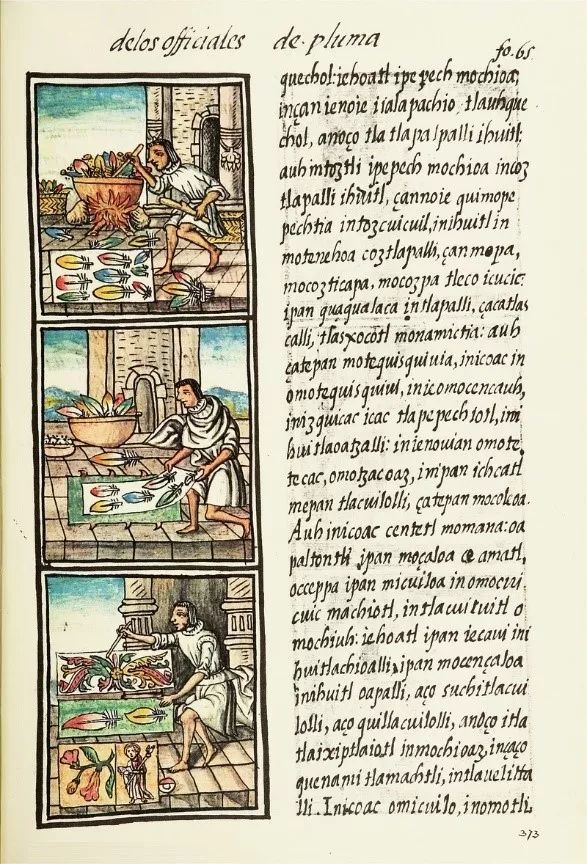 delos officiales de pluma
fo. 65
quechol: iehoatl ipepech mochioa,
inçan ienoie isalapachio, tlauhque
chol, anoço tla tlapalpalli ihuitl:
auh in toztli ipepech mochioa incoz
tlapalli ihuitl, çannoie quimope
pechtia in tozcuicuil, inihuitl in
motenehoa coztlapalli, çan mopa,
mocozticapa, mocozpa tleco icucic:
ipan quaqualaca in tlapalli, çacatlas
calli, tlasxocotl monamictia: auh
çatepan motequisquiuia, inicoac in
omotequisquiui, inic omocencauh,
inizquicac icac tlapepechiotl, ini
huitlaoatzalli: inienouian omote
tecac, omotzacoaz, impan ichcatl
mepan tlacuilolli, çatepan mocoloa.
Auh inicoac centetl momana: oa
paltontli ipan moçaloa amatl,
occeppa ipan micuiloa in omocui
cuic machiotl, in tlacuituitl o
mochiuh: iehoatl ipan iecaui ini
huitlachioalli, ipan mocençaloa
inihuitl oapalli, aço suchitlacui
lolli, aço quillacuilolli, anoço itla
tlaixiptlaiotl inmochioaz, inçaço
quenami tlamachtli, intlauelitta
lli. Inicoac omicuilo, inomotli
373